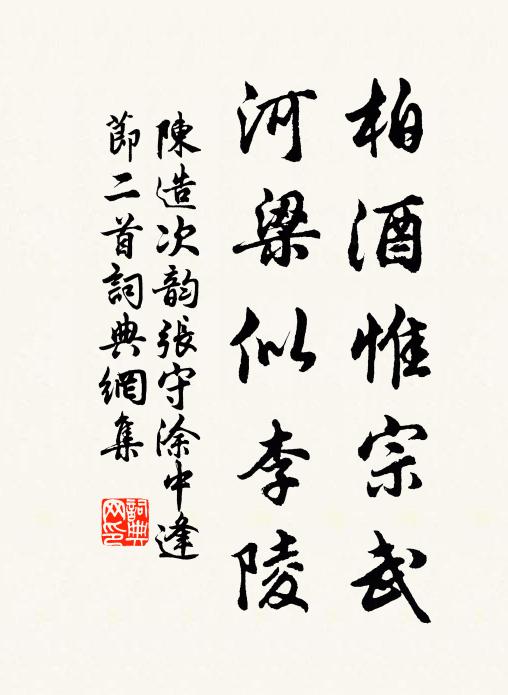 柏酒惟宗武
河梁似李陵
陳造次韵張守涂中逢
節二首詞典網集
詞典网印